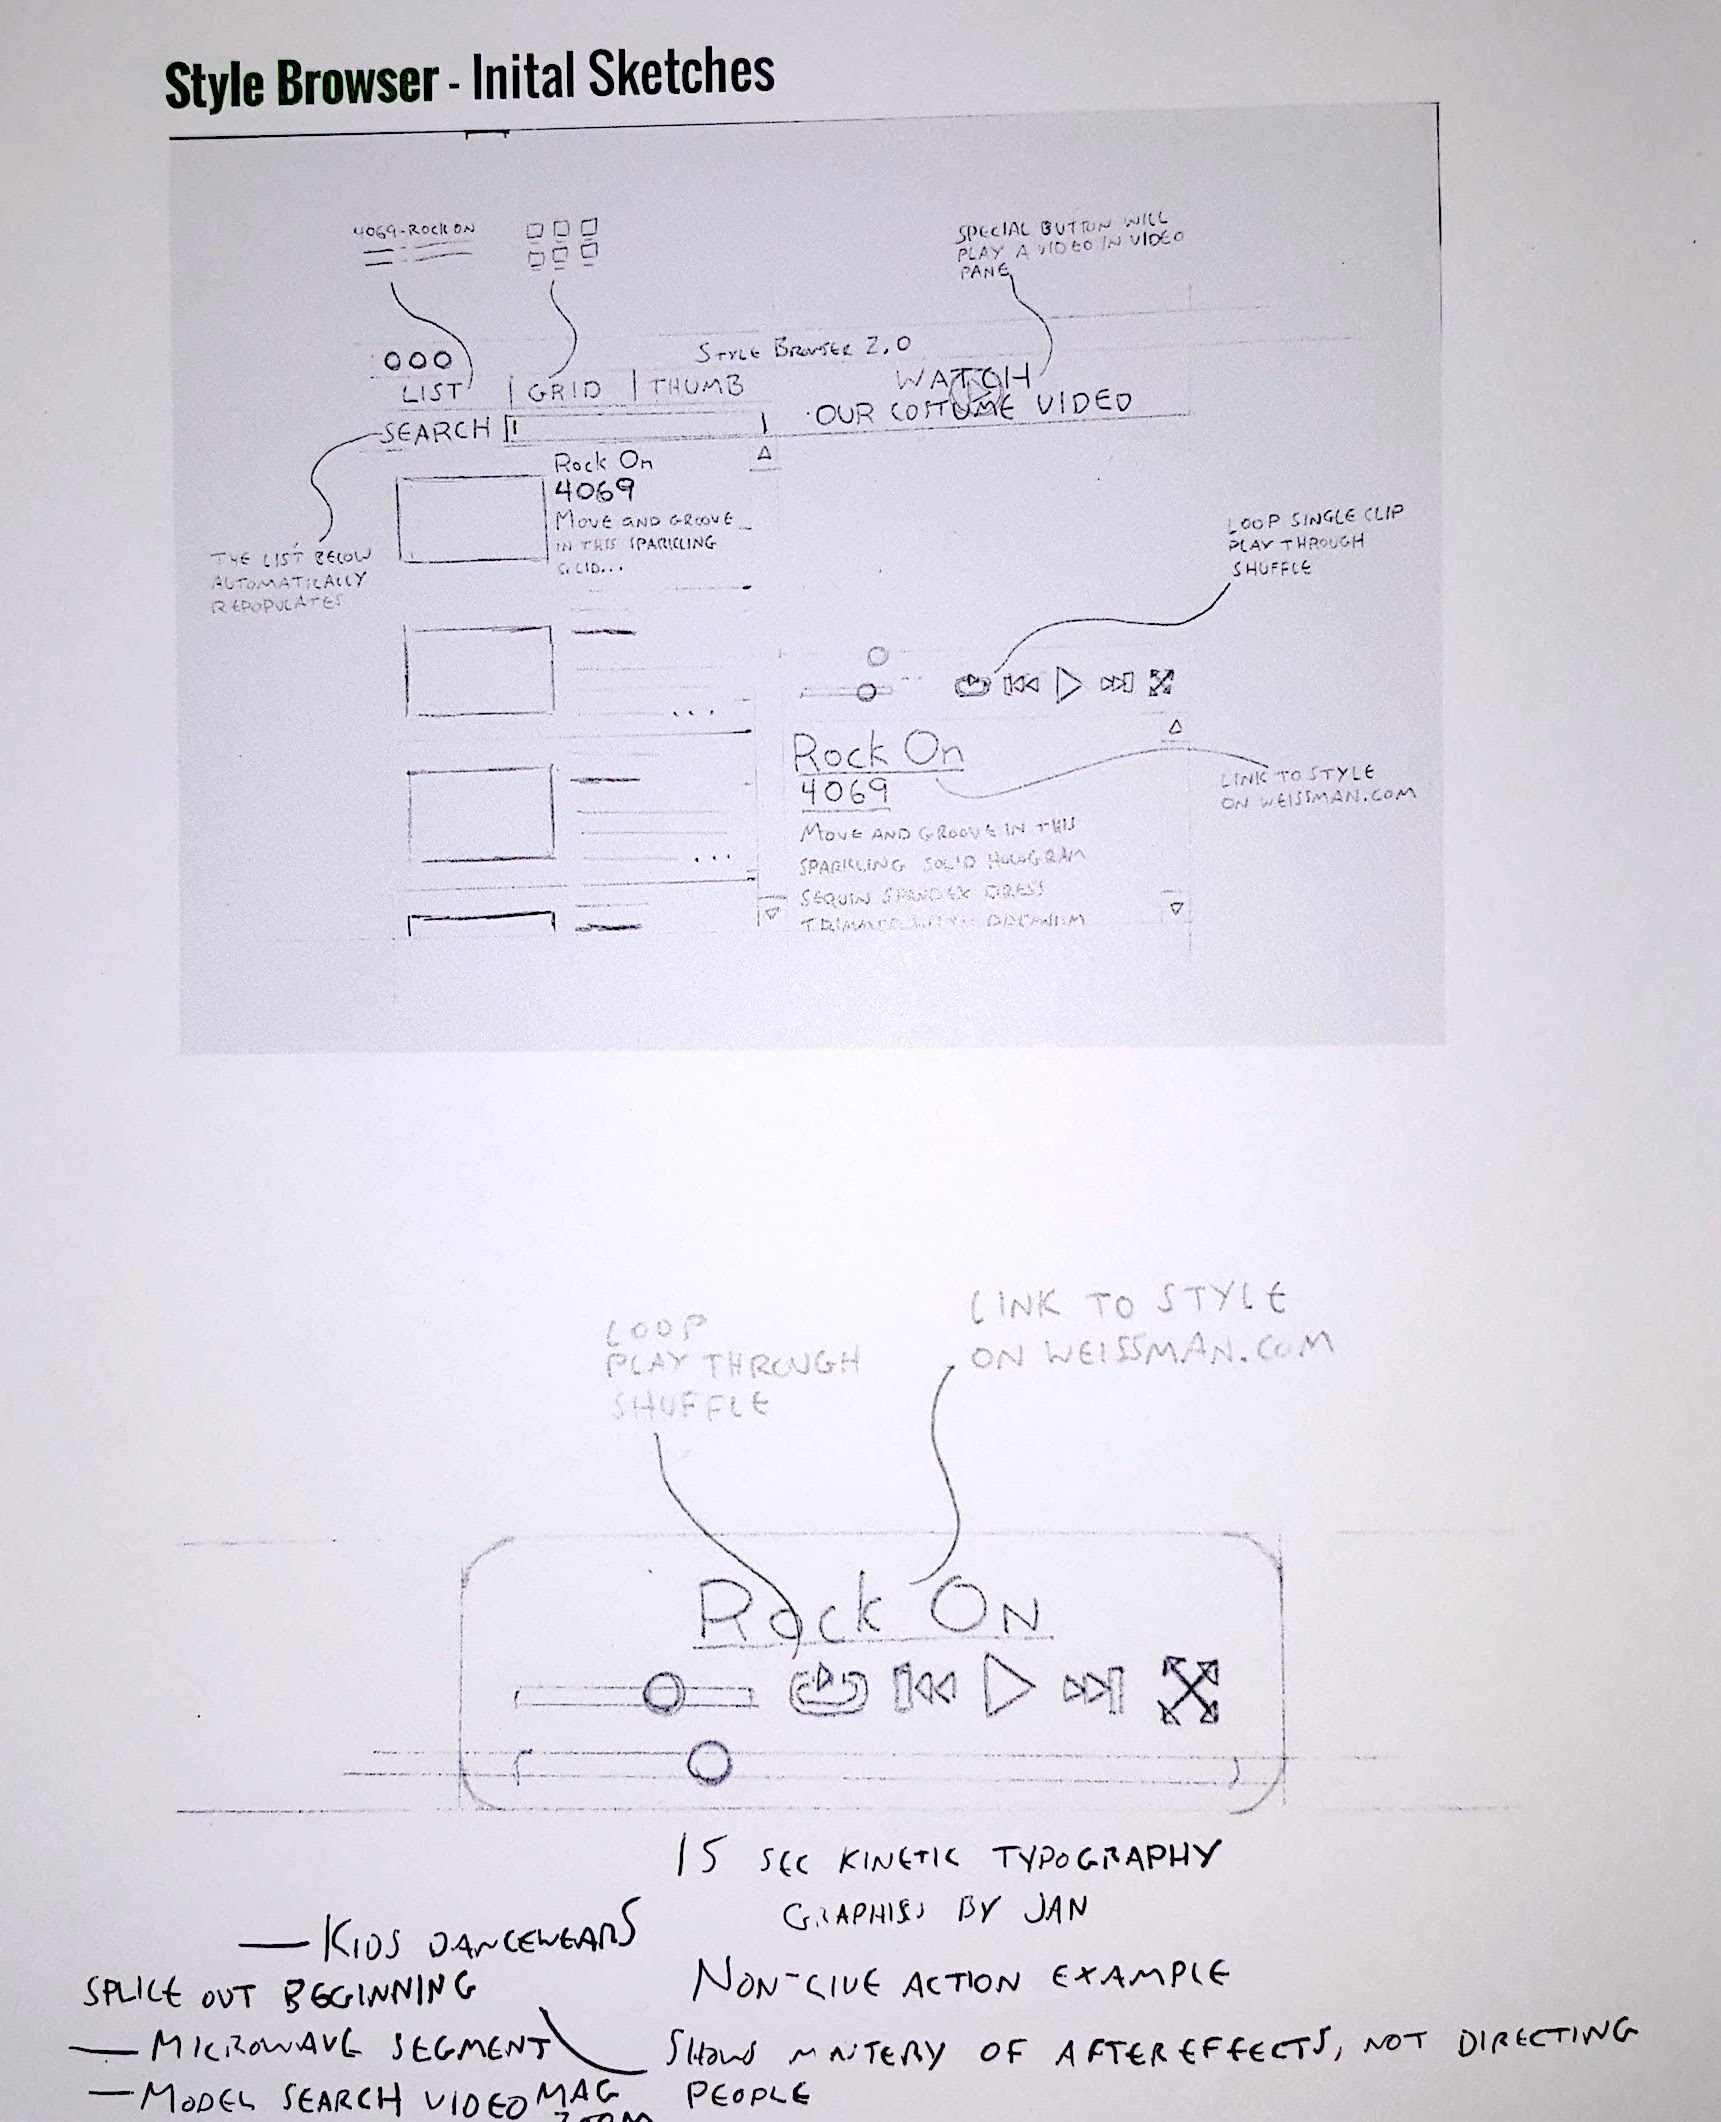 Style Browser - Inital Sketches
4069-ROCK ON
SPECIAL BUTTON WILL
PLAY A VIDEO IN VIDEO
PANE
STYLE BROWSER 2.0
LIST | GRID | THUMB
WATCH
OUR COSTUME VIDEO
SEARCH
Rock On
4069
MOVE AND GROOVE
IN THIS SPARKLING
THE LIST BELOW
AUTOMATICALLY
REPOPULATES
LOOP SINGLE CLIP
PLAY THROUGH
SHUFFLE
...
...
Rock On
4069
MOVE AND GROOVE IN THIS
SPARKLING SOLID HOLOGRAM
SEQUIN SPANDEX DRESS
LINK TO STYLE
ON WEISSMAN.COM
LOOP
PLAY THROUGH
SHUFFLE
LINK TO STYLE
ON WEISSMAN.COM
Rock On
15 SEC KINETIC TYPOGRAPHY
BY JAN
— KIDS DANCEWEARS
SPLICE OUT BEGINNING
— MICROWAVE SEGMENT
— MODEL SEARCH VIDEO MAG
ZOOM
NON-LIVE ACTION EXAMPLE
SHOWS OF AFTEREFFECTS, NOT DIRECTING
PEOPLE